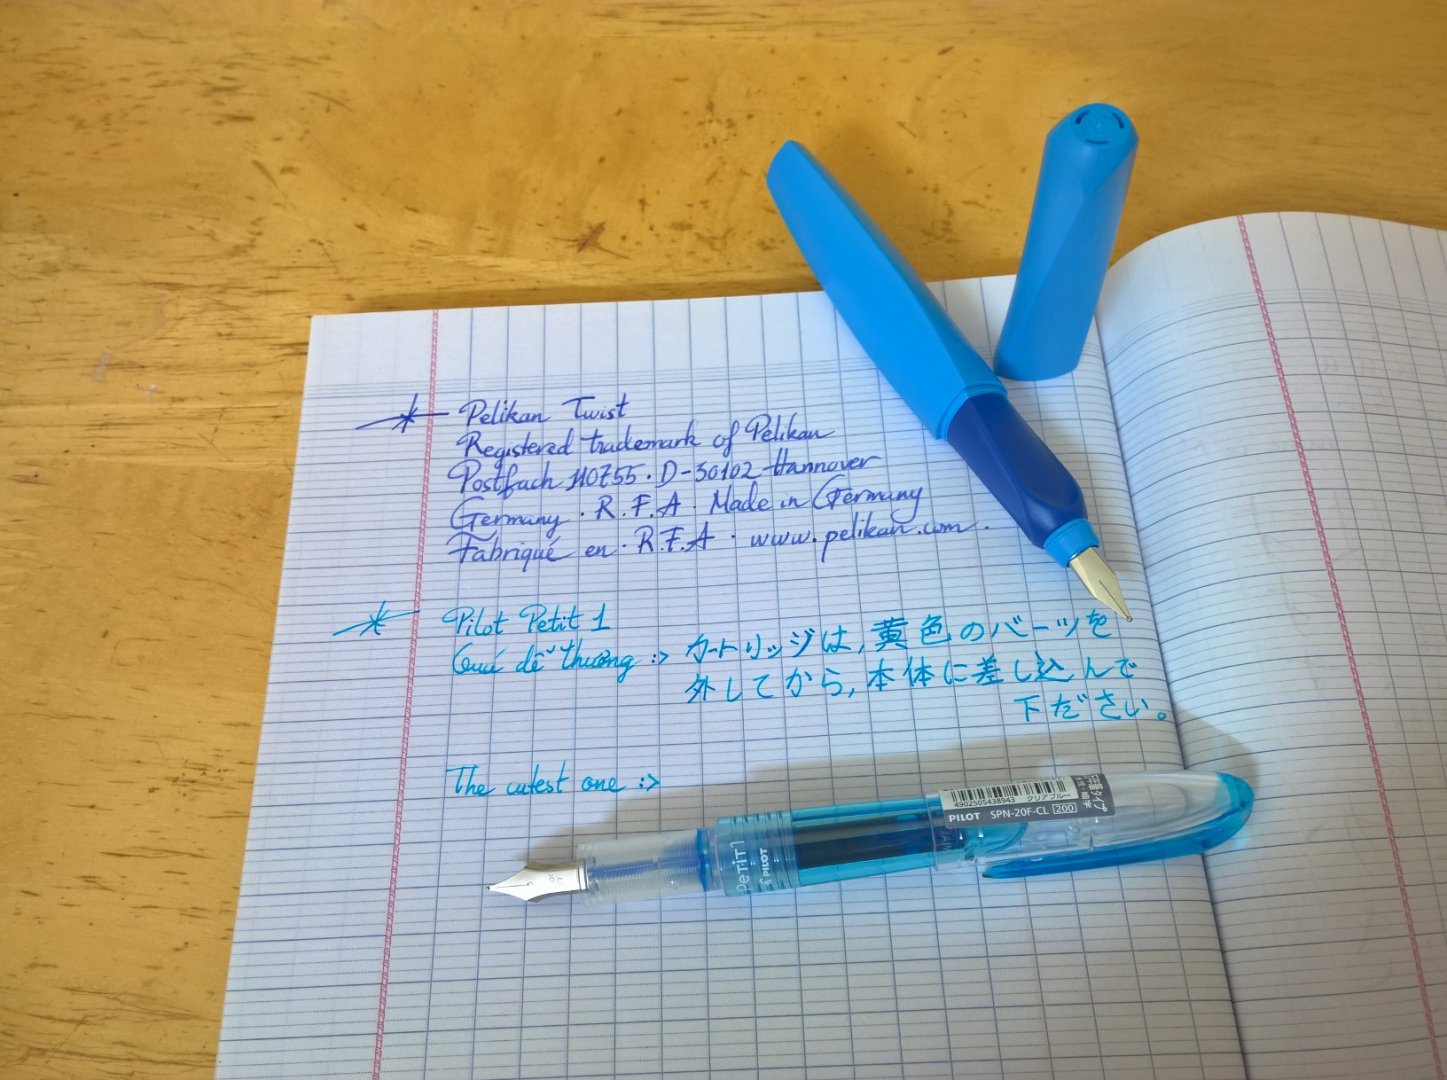 Pelikan Twist
Registered trademark of Pelikan
Postfach 110755 · D-30102 Hannover
Germany · R.F.A · Made in Germany
Fabriqué en · R.F.A · www.pelikan.com.
Pilot Petit 1
Quá dễ thương :>
カートリッジは,黄色のパーツを
外してから,本体に差し込んで
下ださい。
The cutest one :>
4902505438943 クリアブルー
PILOT SPN-20F-CL 200
PETIT1
PILOT